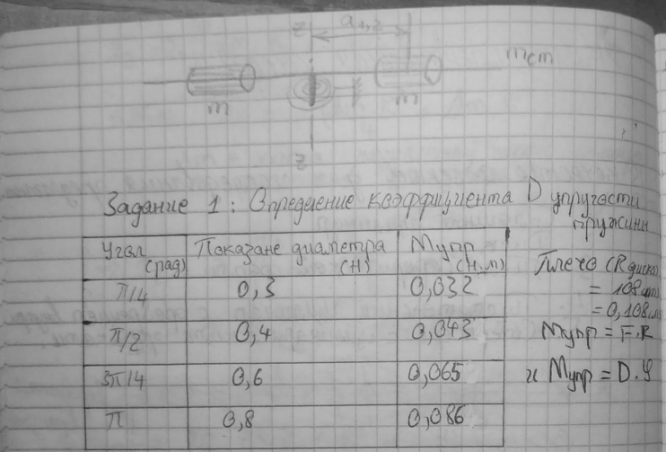 z
a₁,₂
mст
m
m
z
Задание 1: Определение коэффициента D упругости
пружины
Угол (рад) Показане диаметра (Н) Mупр (Н,м)
π/4 0,3 0,032
π/2 0,4 0,043
3π/4 0,6 0,065
π 0,8 0,086
Плечо (R диска)
= 108мм
= 0,108м
Mупр = F.R
и Mупр = D.φ